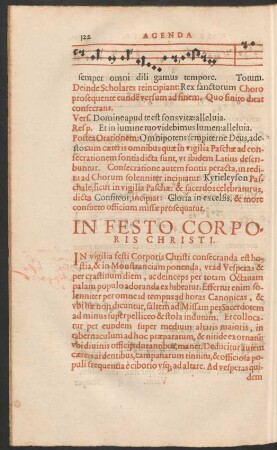 322 AGENDA
semper omni dili gamus tempore. Totum.
Deinde Scholares reincipiant: Rex sanctorum Choro
prosequente eundē versum ad finem. Quo finito dicat
consecrans.
Vers. Domine apud te est fons vitæ alleluia.
Resp. Et in lumine tuo videbimus lumen alleluia.
Postea Orationem: Omnipotens sempiterne Deus, ade-
sto cum cæteris omnibus quæ in vigilia Paschæ ad con-
secrationem fontis dicta sunt, vt ibidem Latius descri-
buntur. Consecratione autem fontis peracta, in reditu
ad Chorum solenniter incipiant: Kyrie eleyson Pas-
chale, sicut in vigilia Paschæ: & sacerdos celebraturus,
dicta Confiteor, incipit: Gloria in excelsis, & more
consueto officium missæ prosequatur.
IN FESTO CORPO-
RIS CHRISTI.
IN vigilia festi Corporis Christi consecranda est ho-
stia, & in Monstranciam ponenda, vt ad Vesperas &
per crastinum diem, ac deinceps per totam Octauam
palam populo adoranda exhibeatur. Effertur enim so-
lenniter per omne id tempus ad horas Canonicas, &
vbi hæ non dicuntur, saltem ad Missam per Sacerdotem
ad minus superpelliceo & stola indutum. Et colloca-
tur per eundem super medium altaris maioris, in
tabernaculum ad hoc præparatum, & inibi ex ornatū:
vbi diuinis officijs durantibus manet. Deducitur autem
candelis ardentibus, campanarum tinnitu, & officiosa po-
puli frequentia è ciborio vsq; ad altare. Ad vesperas qui-
dem